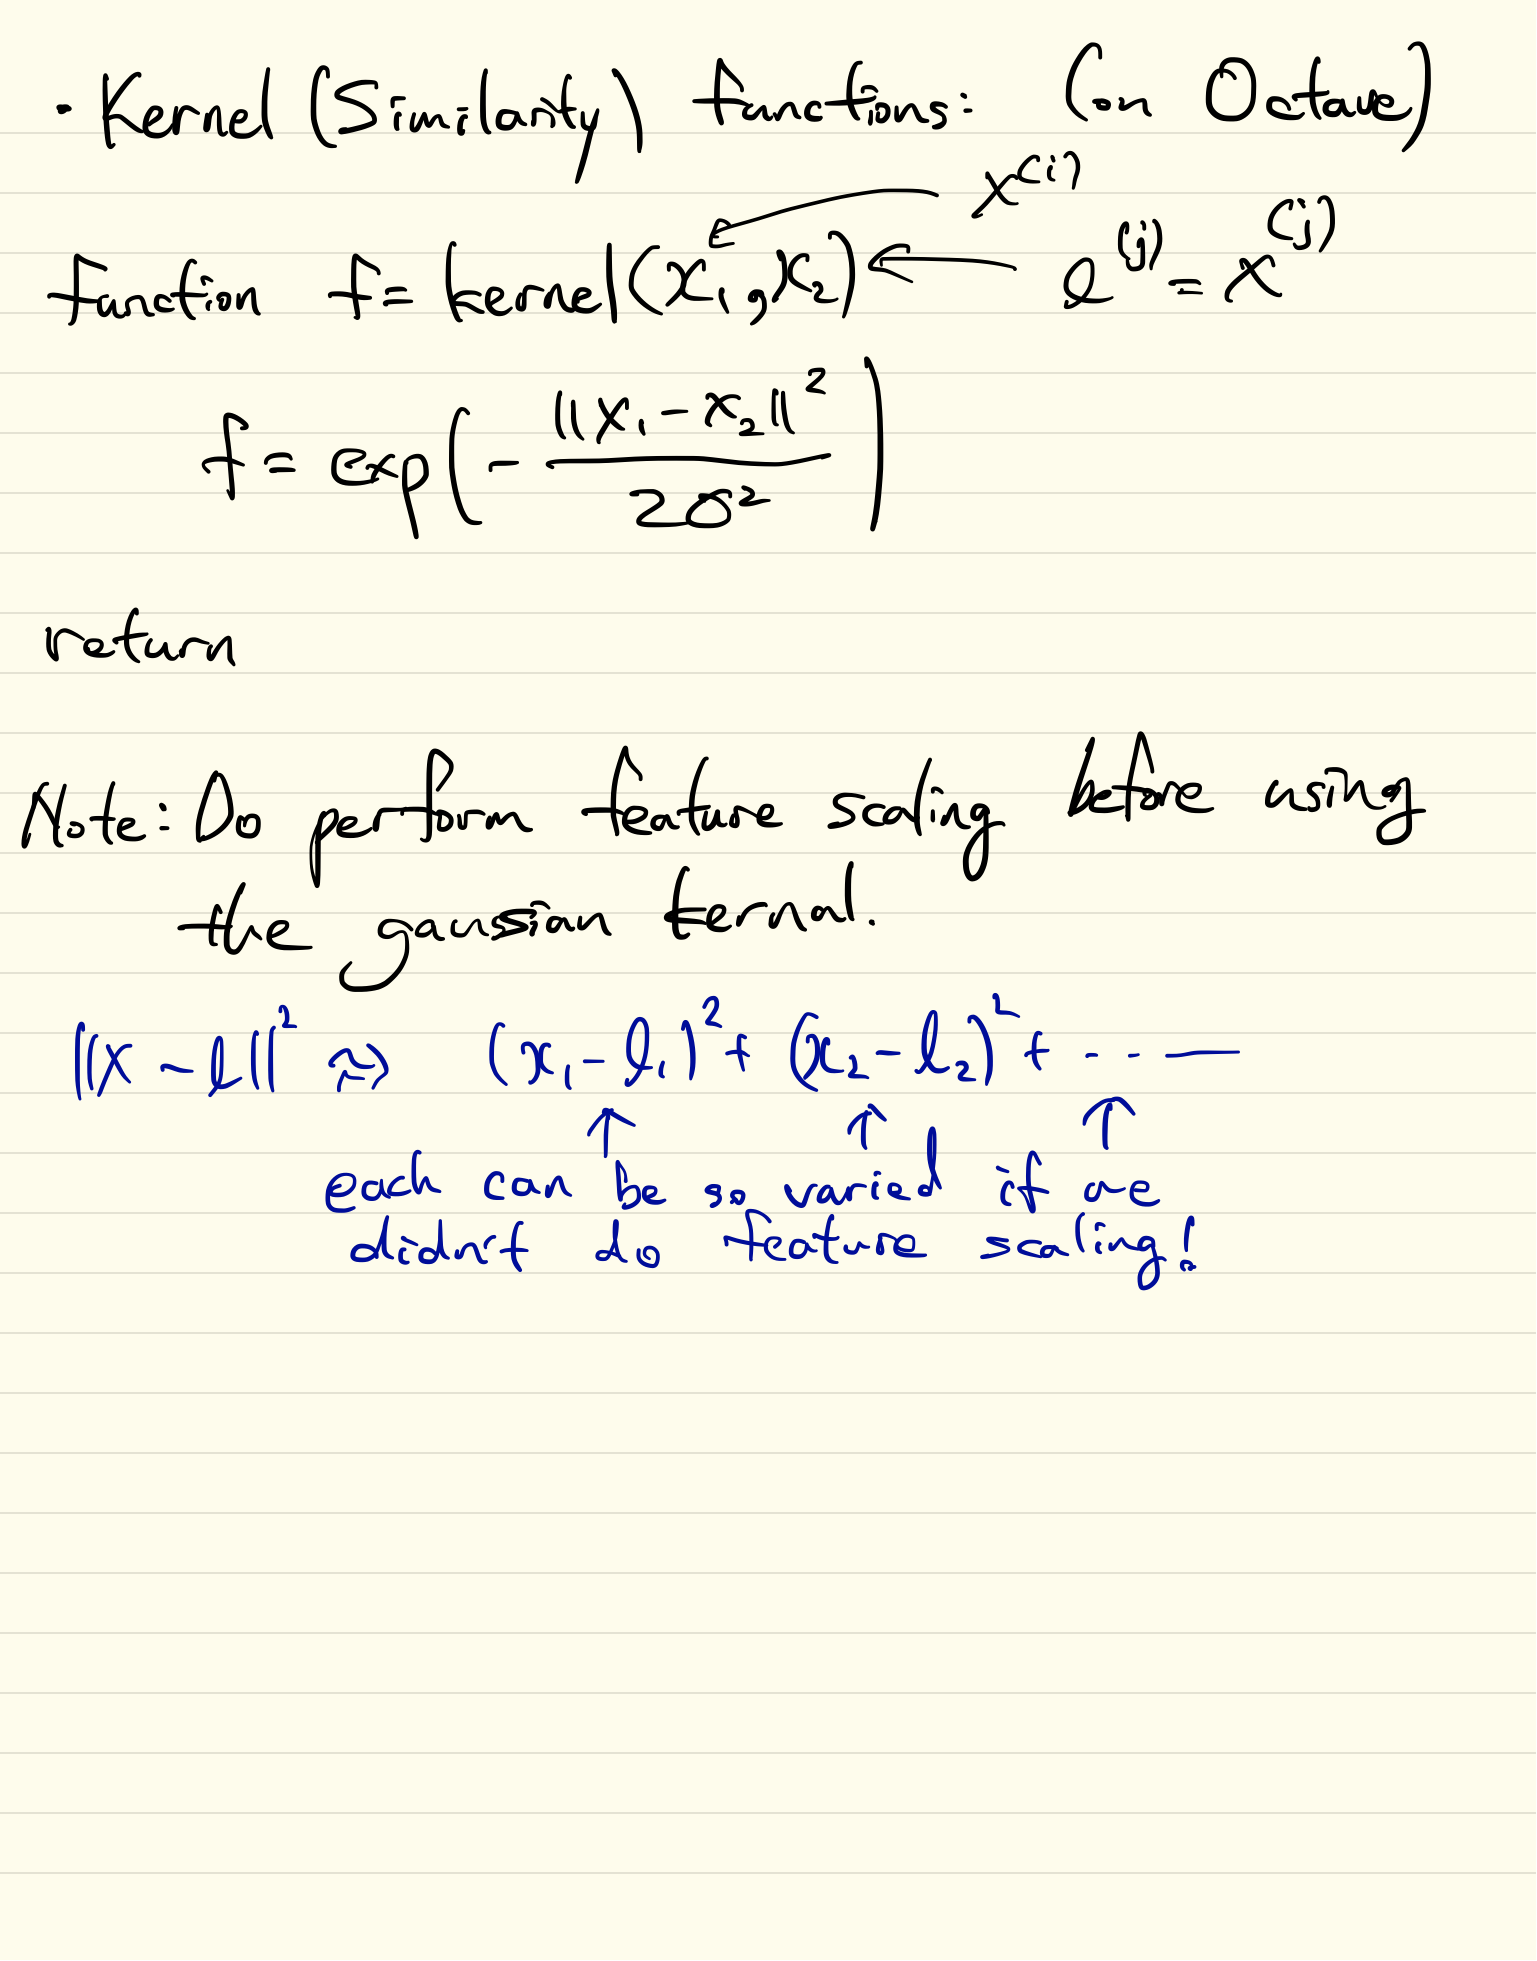 · Kernel (Similarity) functions: (on Octave)
x^(i)
function f = kernel(x₁, x₂) l^(j) = x^(j)
f = exp(- ||x₁ - x₂||² / 2σ²)
return
Note: Do perform feature scaling before using
the gaussian kernal.
||x - l||² ⇒ (x₁ - l₁)² + (x₂ - l₂)² + ... —
↑ ↑ ↑
each can be so varied if we
didn't do feature scaling!